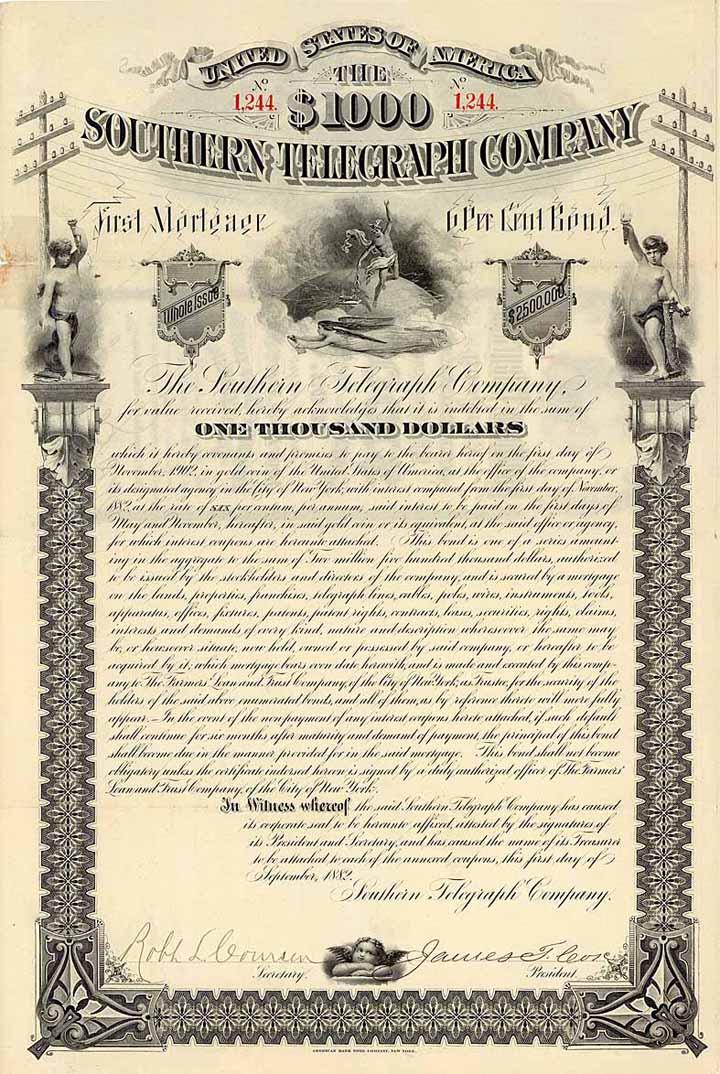 UNITED STATES OF AMERICA
THE
No 1,244. $1000 No 1,244.
SOUTHERN TELEGRAPH COMPANY
First Mortgage 6 Per Cent Bond.
Whole Issue $2500,000
The Southern Telegraph Company,
for value received, hereby acknowledges that it is indebted in the sum of
ONE THOUSAND DOLLARS
which it hereby covenants and promises to pay to the bearer hereof on the first day of
November, 1912, in gold coin of the United States of America, at the office of the company, or
its designated agency in the City of New York, with interest computed from the first day of November,
1882, at the rate of SIX per centum, per annum, said interest to be paid on the first days of
May and November, hereafter, in said gold coin or its equivalent, at the said office or agency,
for which interest coupons are hereunto attached. This bond is one of a series amount-
ing in the aggregate to the sum of Two million five hundred thousand dollars, authorized
to be issued by the stockholders and directors of the company, and is secured by a mortgage
on the lands, properties, franchises, telegraph lines, cables, poles, wires, instruments, tools,
apparatus, offices, fixtures, patents, patent rights, contracts, leases, securities, rights, claims,
interests and demands of every kind, nature and description wheresoever the same may
be, or howsoever situate, now held, owned or possessed by said company, or hereafter to be
acquired by it; which mortgage bears even date herewith, and is made and executed by this comp-
any to The Farmers' Loan and Trust Company, of the City of New York, as Trustee, for the security of the
holders of the said above enumerated bonds, and all of them, as by reference thereto will more fully
appear. In the event of the non payment of any interest coupons hereto attached, if such default
shall continue for six months after maturity and demand of payment, the principal of this bond
shall become due in the manner provided for in the said mortgage. This bond shall not become
obligatory unless the certificate indorsed hereon is signed by a duly authorized officer of The Farmers'
Loan and Trust Company, of the City of New York.
In Witness whereof the said Southern Telegraph Company has caused
its corporate seal to be hereunto affixed, attested by the signatures of
its President and Secretary, and has caused the name of its Treasurer
to be attached to each of the annexed coupons, this first day of
September, 1882.
Southern Telegraph Company.
Robt L. Coursen James T. Cox
Secretary. President
AMERICAN BANK NOTE COMPANY, NEW YORK.